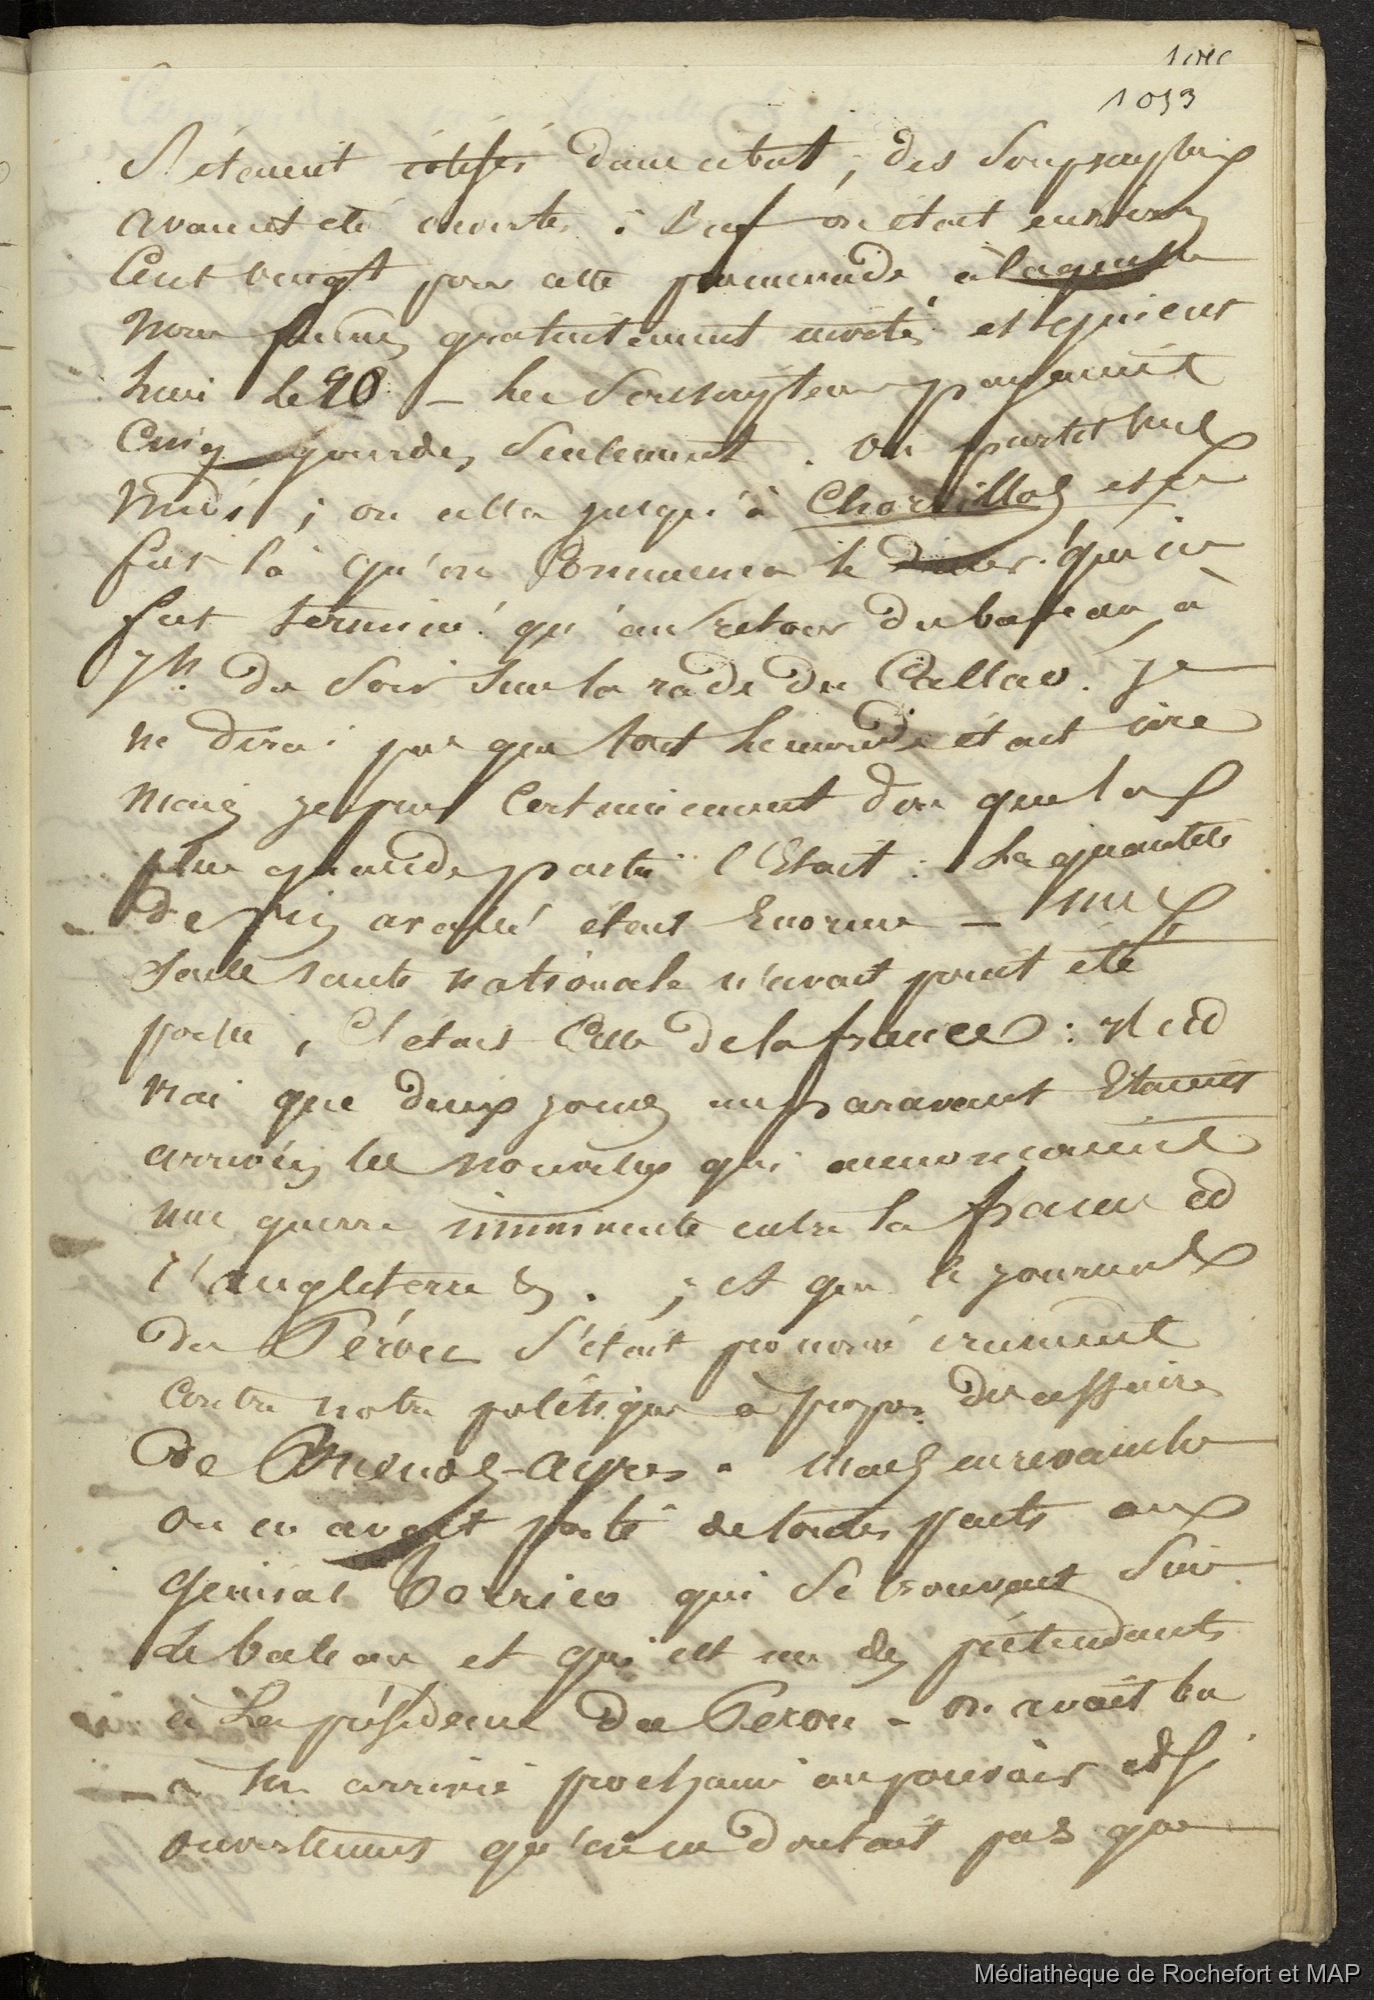 1053
S'étaient cotisés dans ce but, des souscriptions
avaient été ouvertes : bref on était environ
Cent vingt pour cette promenade à laquelle
nous fûmes gratuitement invités et qui eut
lieu le 20 – les Souscripteurs payaient
Cinq gourdes seulement. on partit vers
midi ; on alla jusqu'à Chorillos et ce
fut là qu'on commença le diner qui ne
fut terminé qu'au retour du bateau à
7h. du soir sur la rade du Callao. je
ne dirai pas que tout le monde était ivre
mais je puis certainement dire que la
plus grande partie l'Etait : la quantité
de vin avalé était Enorme – une
seule santé nationale n'avait point été
portée, C'était Celle de la france : il est
vrai que deux jours auparavant Etaient
arrivées les nouvelles qui annoncaient
une guerre imminente entre la france et
l'angleterre &. ; et que le journal
du Pérou s'était prononcé crûment
contre notre politique à propos des affaires
de Buenos-ayres. mais en revanche
on en avait porté de toutes parts aux
général Torrico qui se trouvait sur
le bateau et qui est un des prétendants
à la présidence du Pérou – on avait bu
à son arrivée prochaine au pouvoir et si
ouvertement qu'on ne doutait pas que
Médiathèque de Rochefort et MAP